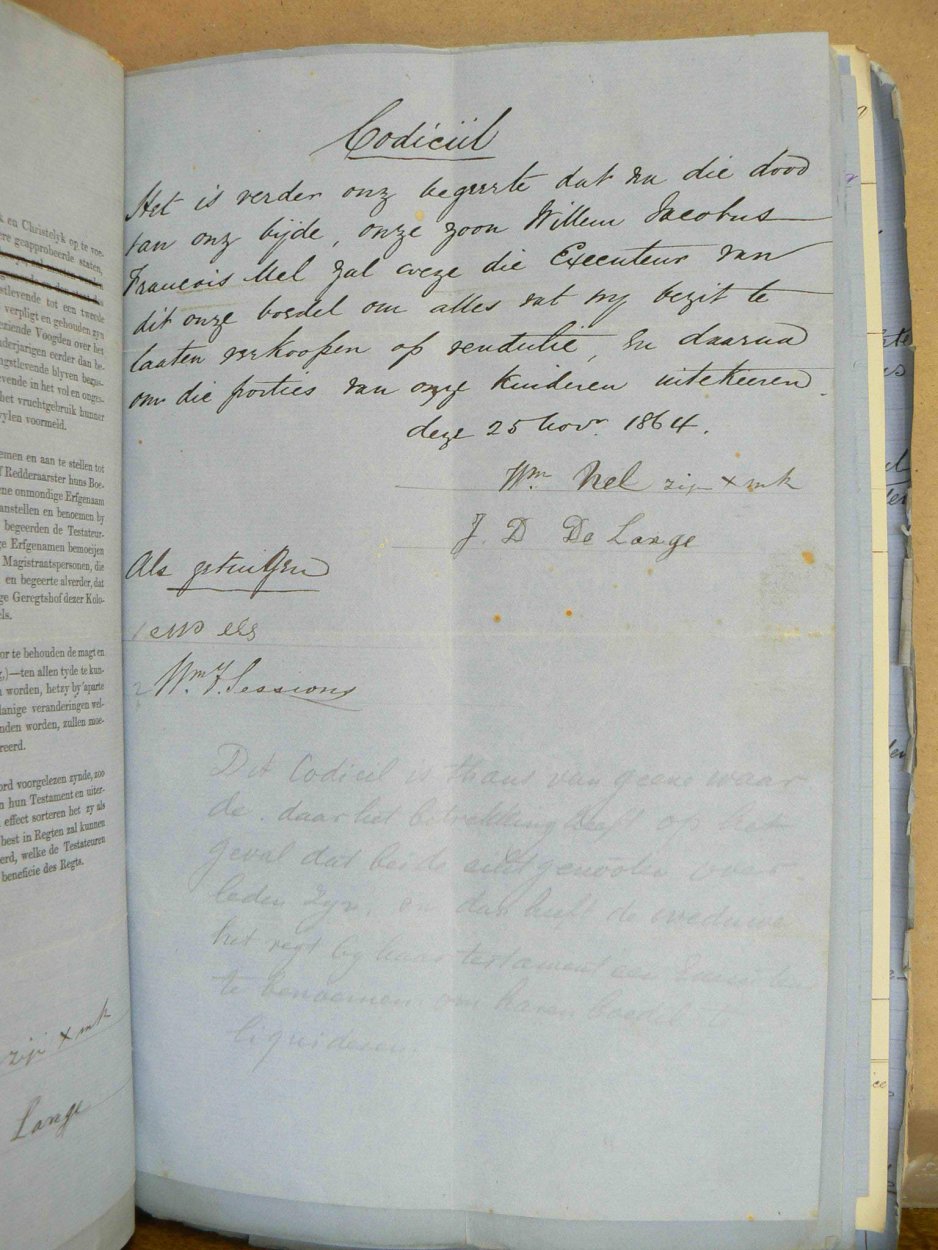 k en Christelyk op te voe-
ere geapprobeerde staten,
gstlevende tot een tweede
verpligt en gehouden zyn
eziende Voogden over het
nderjarigen eerder dan be-
ngstlevende blyven bezit-
evende in het vol en onges-
het vruchtgebruik hunner
ylen voormeld.
emen en aan te stellen tot
f Redderaarster huns Boe-
ene onmondige Erfgenaam
anstellen en benoemen by
begeerden de Testateur-
ge Erfgenamen bemoeijen
Magistraatspersonen, die
en begeerte alverder, dat
ge Geregtshof dezer Kolo-
els.
or te behouden de magt en
g,)—ten allen tyde te kun-
n worden, hetzy by aparte
danige veranderingen wel-
nden worden, zullen moe-
reerd.
ord voorgelezen zynde, zoo
n hun Testament en uiter-
effect sorteren het zy als
best in Regten zal kunnen
erd, welke de Testateuren
beneficie des Regts.
zijn x mk
Lange
Codiciil
Het is verder onz begeerte dat na die dood
van onz bijde, onze zoon Willem Jacobus
Francois Nel zal weze die Executeur van
dit onze boedel om alles dat my bezit te
laaten verkoopen op vendutie, En daarna
om die porties van onze kinderen uitekeeren
deze 25 Novr. 1864.
Wm Nel zijn x mk
J. D De Lange
Als getuigen
1
2 Wm F. Sessions
Dit Codicil is thans van geene waar
de. daar het betrekking heeft op het
geval dat beide echtgenooten over
leden zyn, en dan heeft de weduwe
het regt by haar testament een
te benoemen om haren boedel te
liquideren.